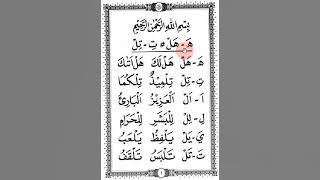 بِسْمِ اللهِ الرَّحْمٰنِ الرَّحِيْمِ
هَـ - هَلْ ه تِ - تِلْ
هَـ - هَلْ هَلْ لَكَ هَلْ اَتٰكَ
تِ - تِلْ تِلْمِيْذٌ تِلْكُمَا
اَ - اَلْ اَلْعَزِيْزُ اَلْبَارِئُ
لِ - لِلْ لِلْبَشَرِ لِلْحَرَامِ
يَ - يَلْ يَلْفِظُ يَلْعَبُ
تَ - تَلْ تَلْبَسُ تَلْقَفُ